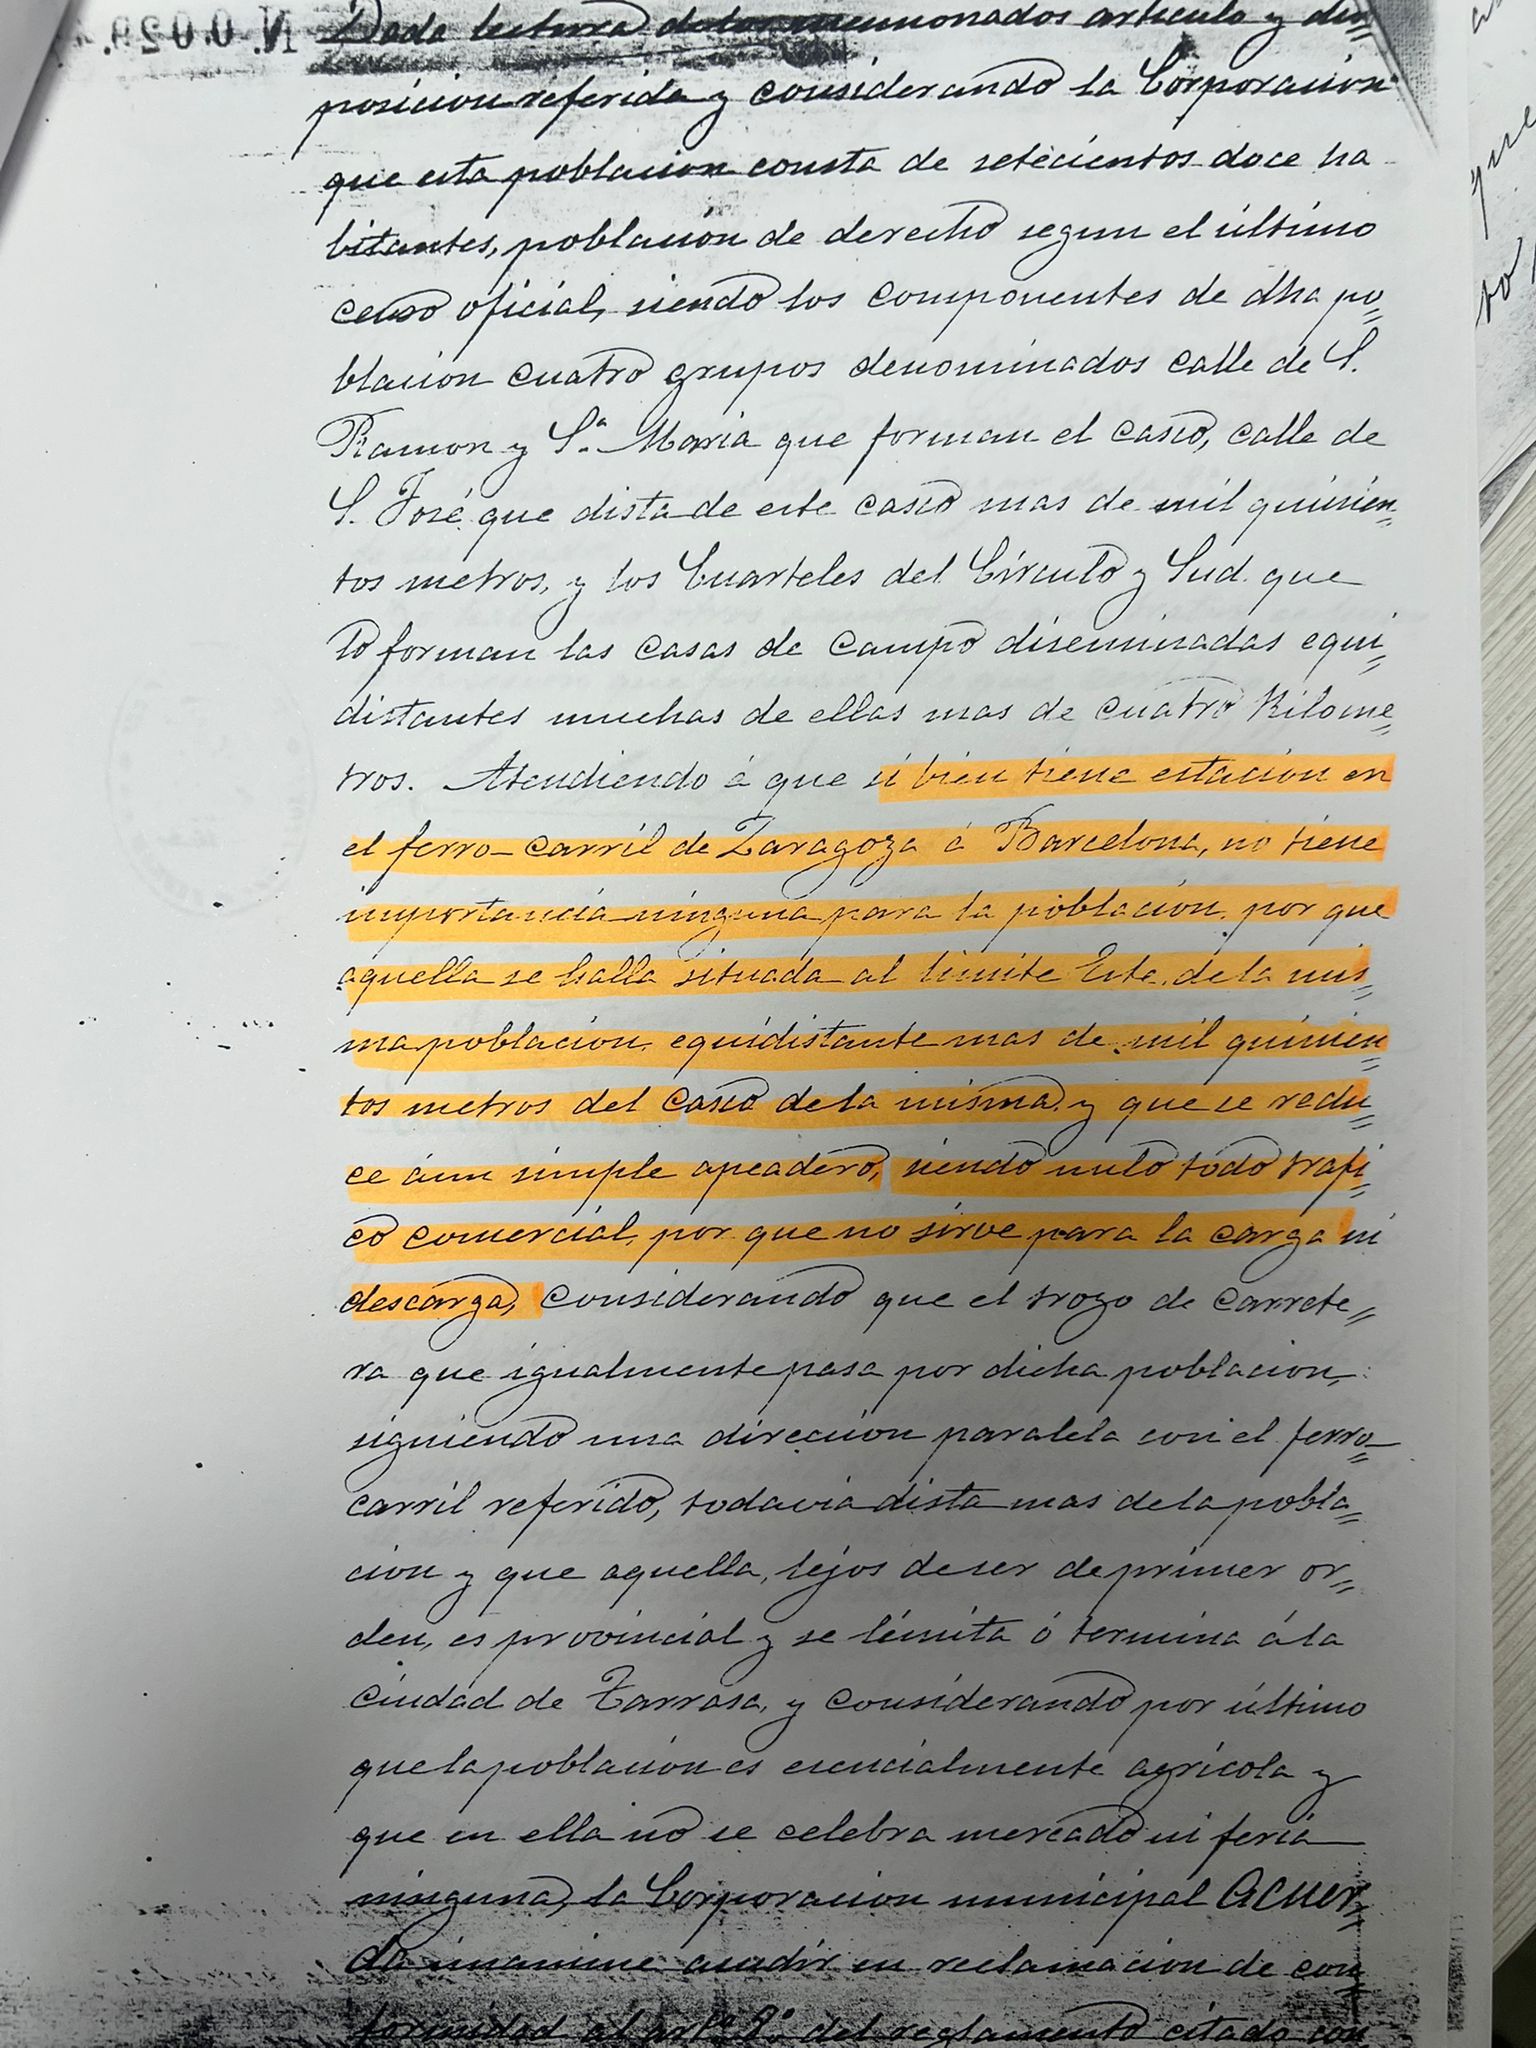 N.0.029.
Dada lectura de los mencionados articulo y dis=
posicion referida y considerando la Corporacion
que esta poblacion consta de setecientos doce ha
bitantes, población de derecho segun el último
censo oficial, siendo los componentes de dha po=
blacion cuatro grupos denominados calle de S.
Ramon y Sª. Maria que forman el casco, calle de
S. José que dista de este casco mas de mil quinien=
tos metros, y los Cuarteles del Círculo y Sud que
lo forman las casas de campo diseminadas equi=
distantes muchas de ellas mas de cuatro Kilome=
tros. Atendiendo á que si bien tiene estacion en
el ferro-carril de Zaragoza á Barcelona, no tiene
importancia ninguna para la poblacion, por que
aquella se halla situada al limite Este de la mis=
ma poblacion, equidistante mas de mil quinien
tos metros del casco de la misma, y que se redu=
ce áun simple apeadero, siendo nulo todo trafi=
co comercial, por que no sirve para la carga ni
descarga, considerando que el trozo de carrete=
ra que igualmente pasa por dicha poblacion,
siguiendo una direccion paralela con el ferro=
carril referido, todavia dista mas de la pobla=
cion y que aquella, lejos de ser de primer or=
den, es provincial y se límita ó termina á la
ciudad de Tarrasa, y considerando por último
que la poblacion es esencialmente agrícola y
que en ella no se celebra mercado ni feria
ninguna, la Corporacion municipal acuer=
da unanime acudir en reclamacion de con
formidad al artº. 8º. del reglamento citado con